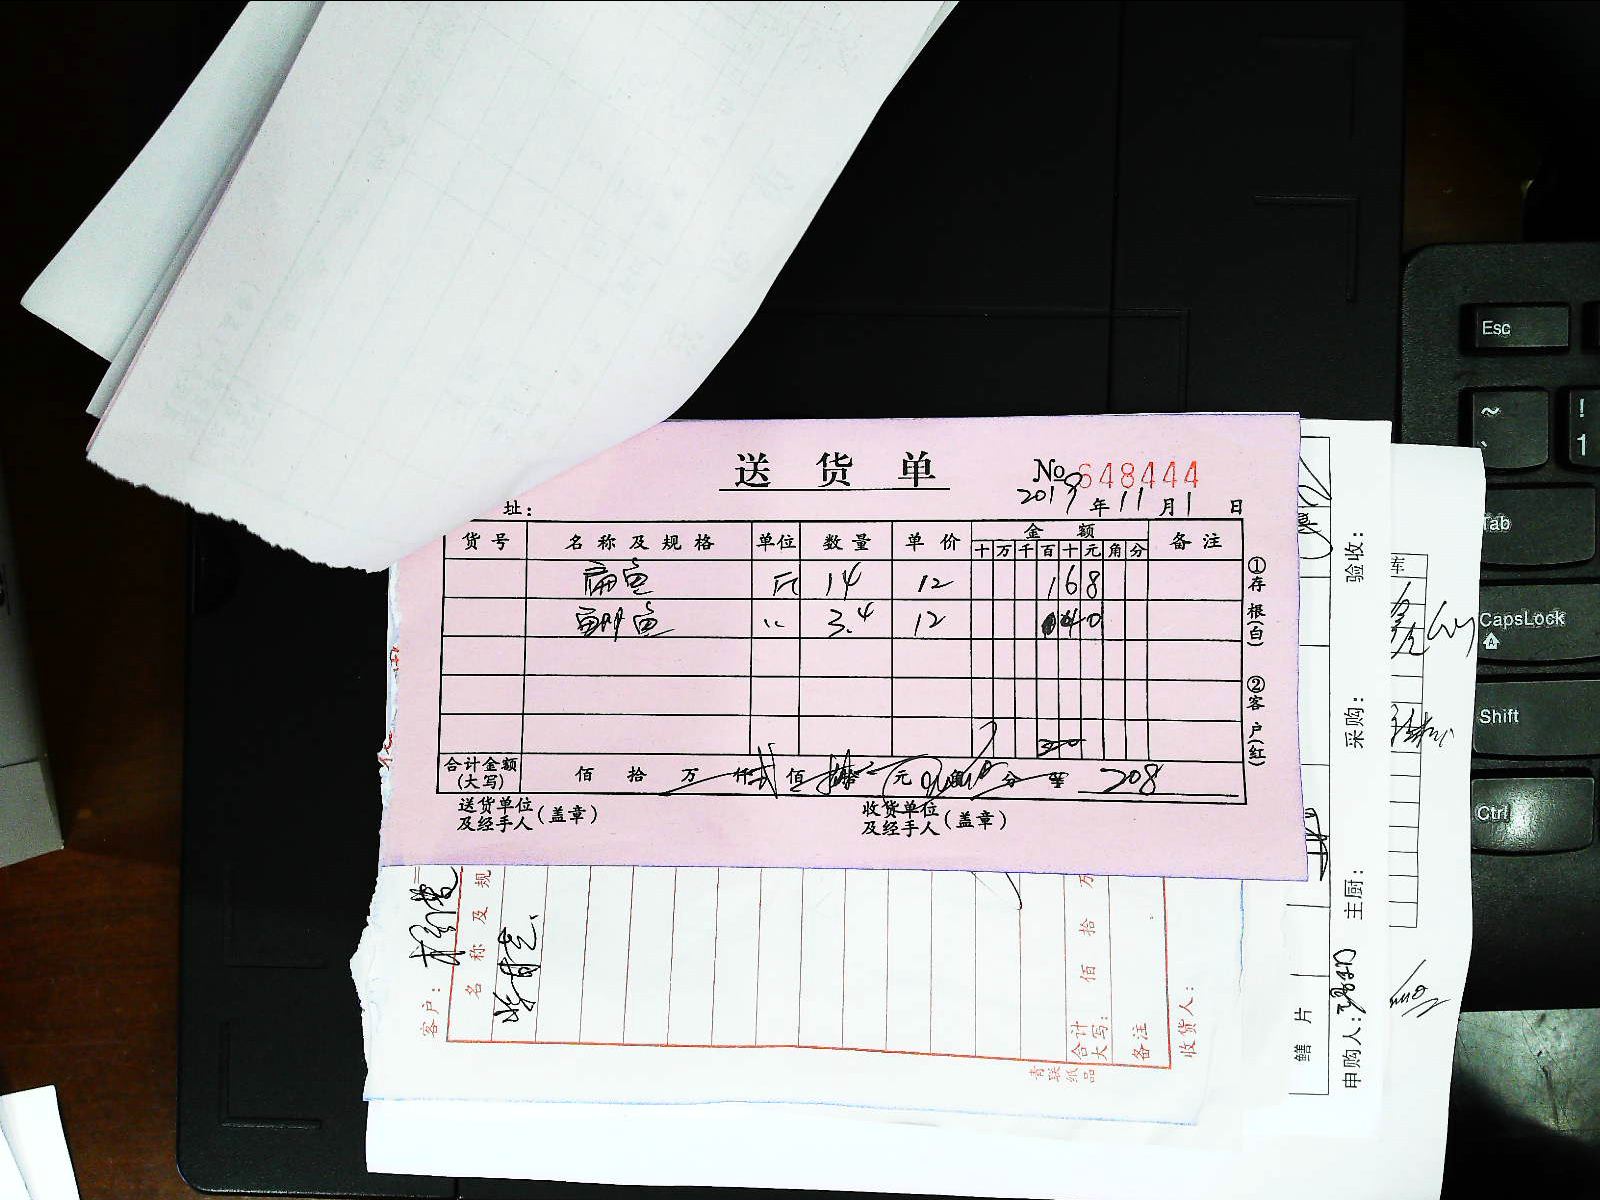 送货单
No 648444
2019年11月1日
址：
货号 名称及规格 单位 数量 单价 金额 备注
十 万 千 百 十 元 角 分
扁鱼 斤 14 12 168
鱼 〃 3.4 12 40
合计金额(大写) 佰 拾 万 仟 贰 佰 元 分 208
送货单位及经手人(盖章)
收货单位及经手人(盖章)
①存根(白)
②客户(红)
客户：
名称及规
合计大写： 佰 拾 万
备注
收货人：
青联纸品
验收：
采购：
主厨：
申购人：
鳝片
车
Esc
~
`
!
1
Tab
CapsLock
A
Shift
Ctrl